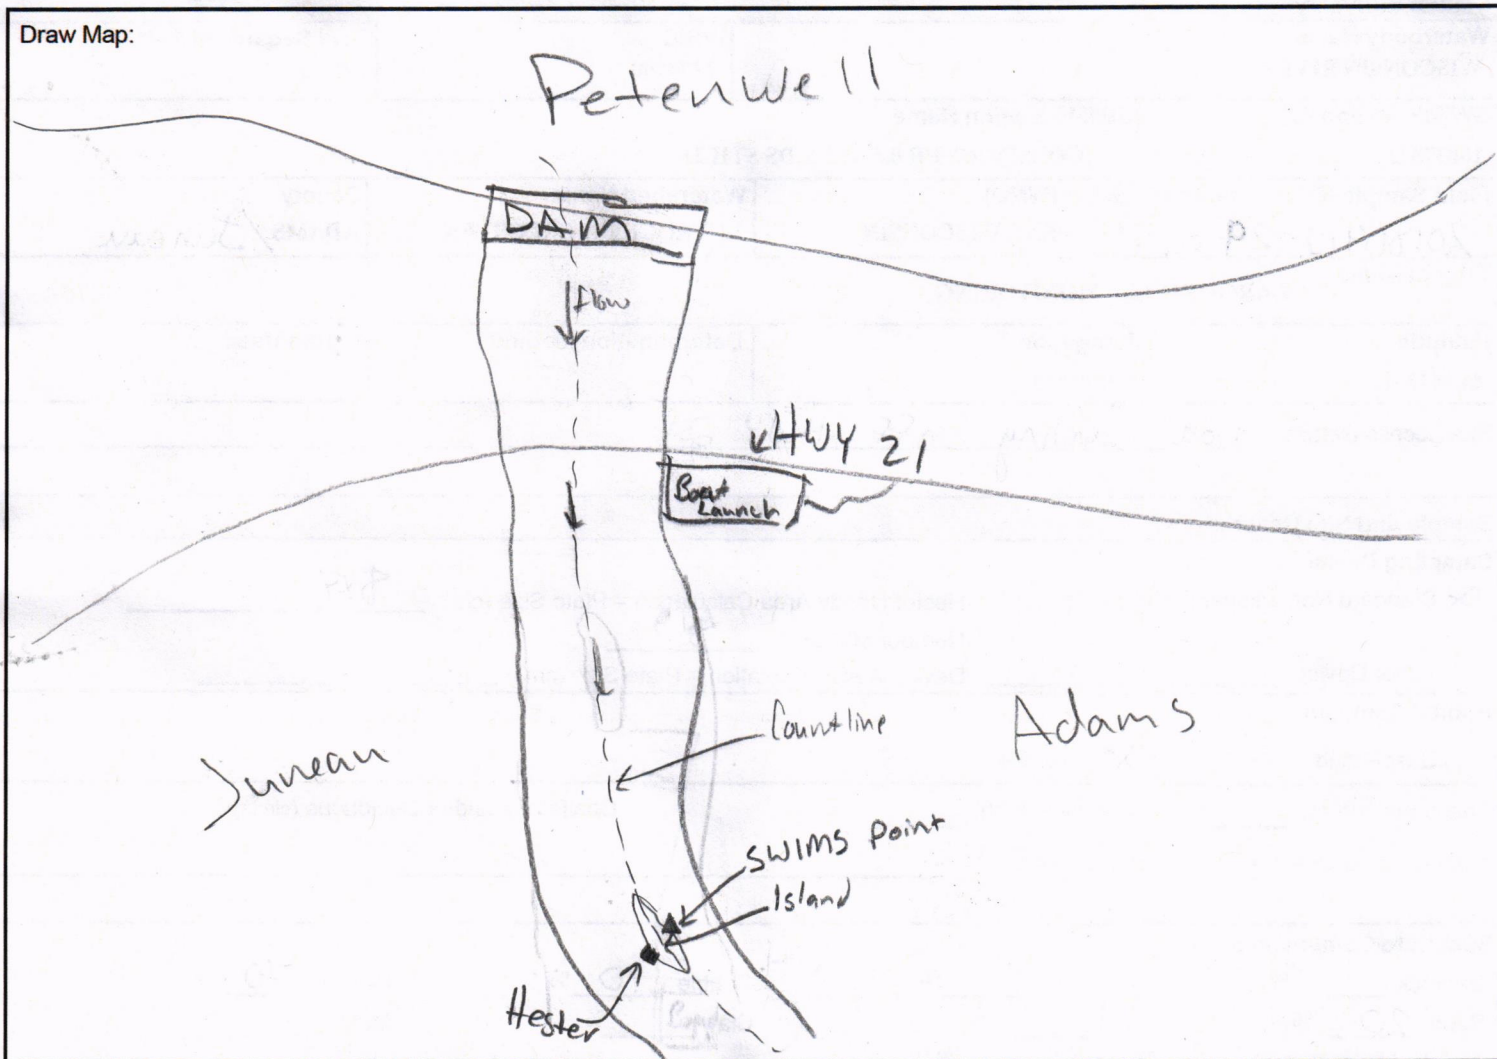 Draw Map:
Petenwell
DAM
flow
HWY 21
Boat
Launch
Countline
Adams
Juneau
SWIMS point
Island
Hester